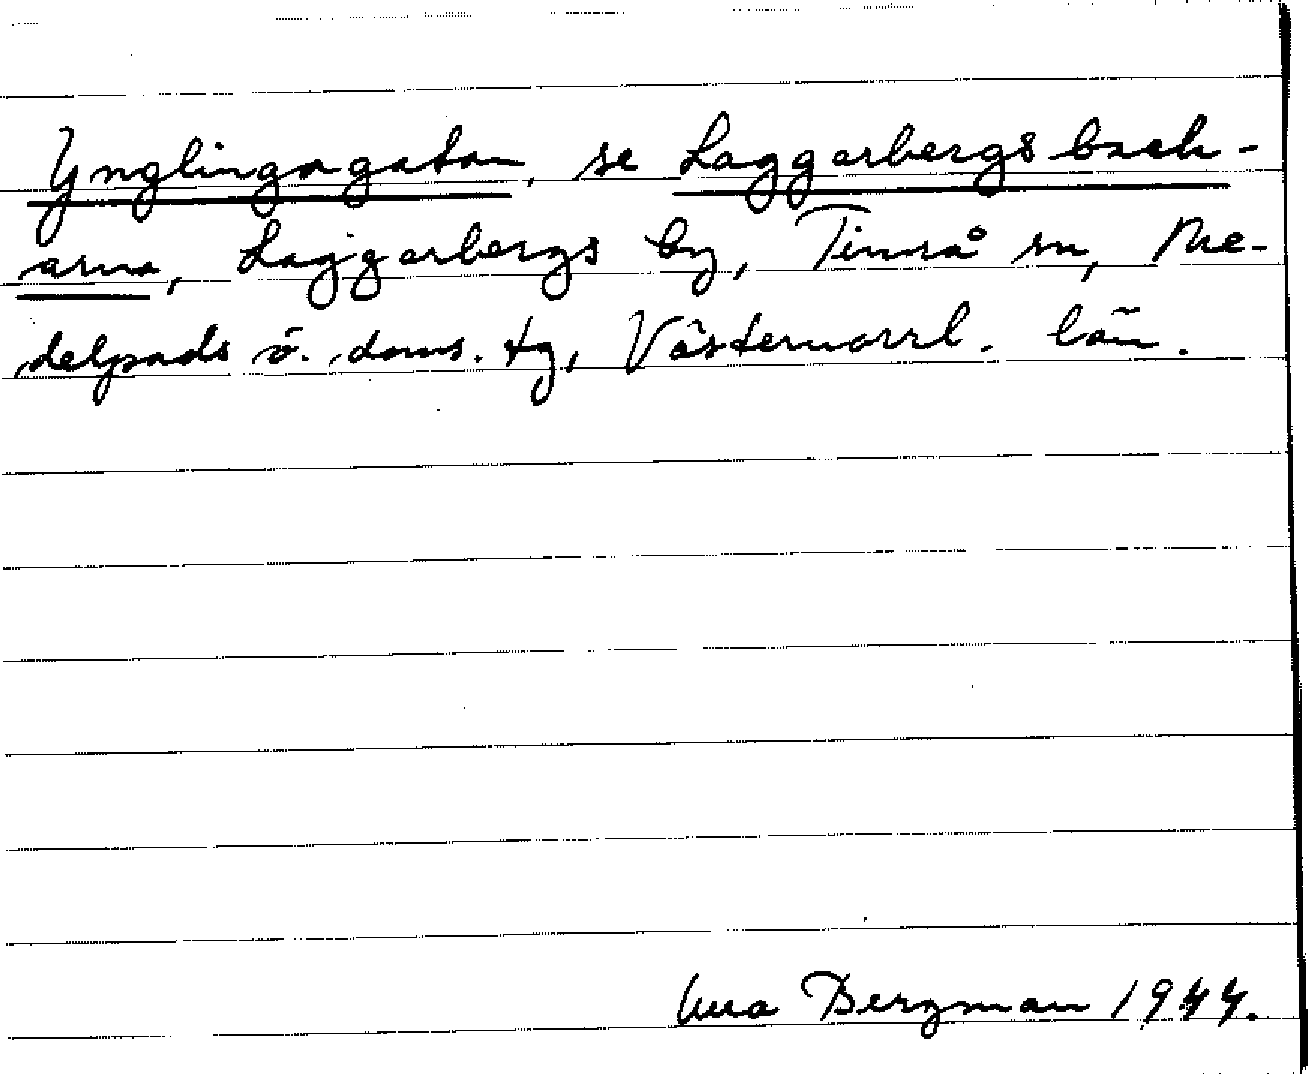 Ynglingagatan, se Laggarbergsback-
arna, Laggarbergs by, Timrå sn, Me-
delpads ö. doms. tg, Västernorrl. län.
Bergman 1944.